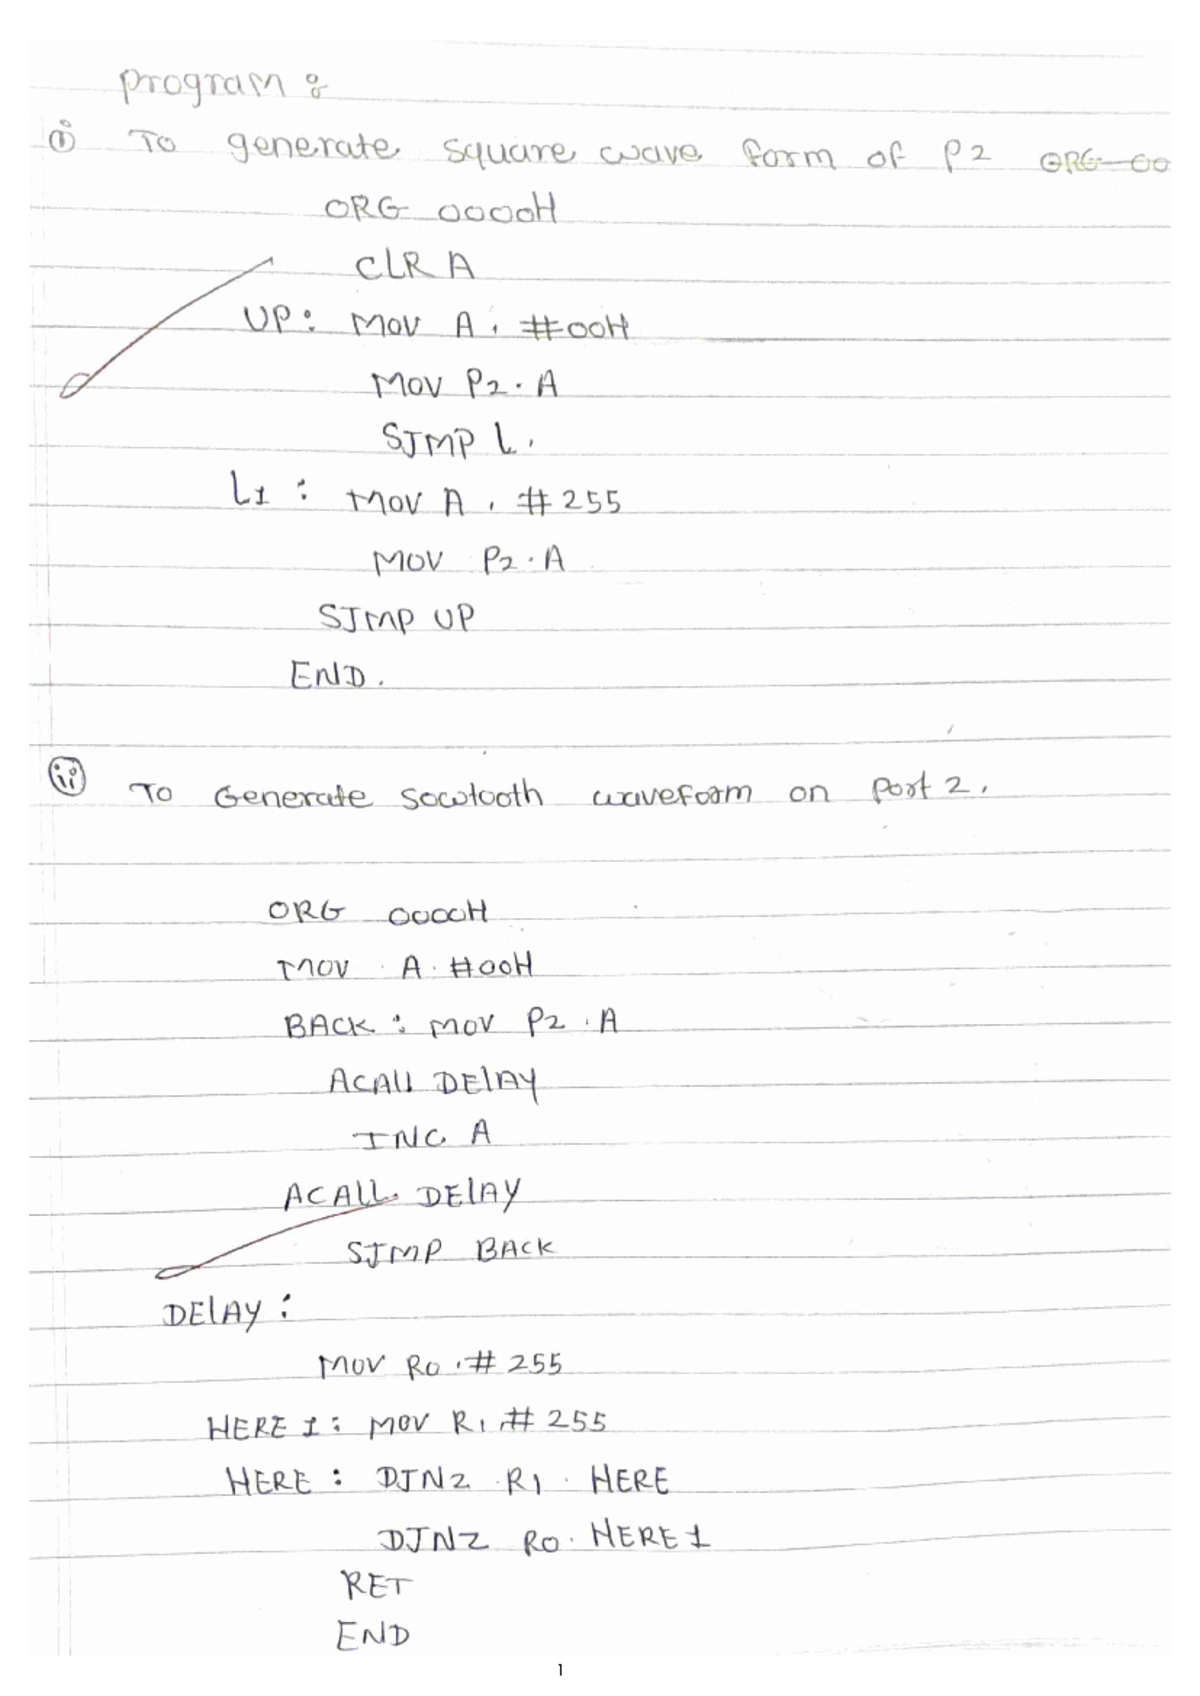 Program :
(i) To generate square wave form of P2 ORG 00
ORG 0000H
CLR A
UP: MOV A, #00H
MOV P2.A
SJMP L.
L1 : MOV A, #255
MOV P2.A
SJMP UP
END.
(ii) To Generate sawtooth waveform on Port 2.
ORG 0000H
MOV A. #00H
BACK : MOV P2 .A
ACAll DElAY
INC A
ACALL DElAY
SJMP BACK
DElAY :
MOV R0 .# 255
HERE 1: MOV R1 # 255
HERE : DJNZ R1 . HERE
DJNZ R0. HERE1
RET
END
1